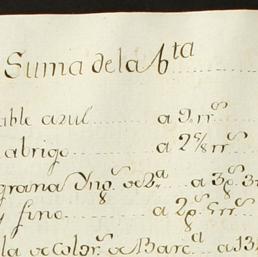 Suma de la bta
able azul a 9 rrs
abrigo a 2 5/8 rrs
grana Yngs de 2a a 3ps 3
fino a 2ps 5 rrs
la de Colors de Barca a 13